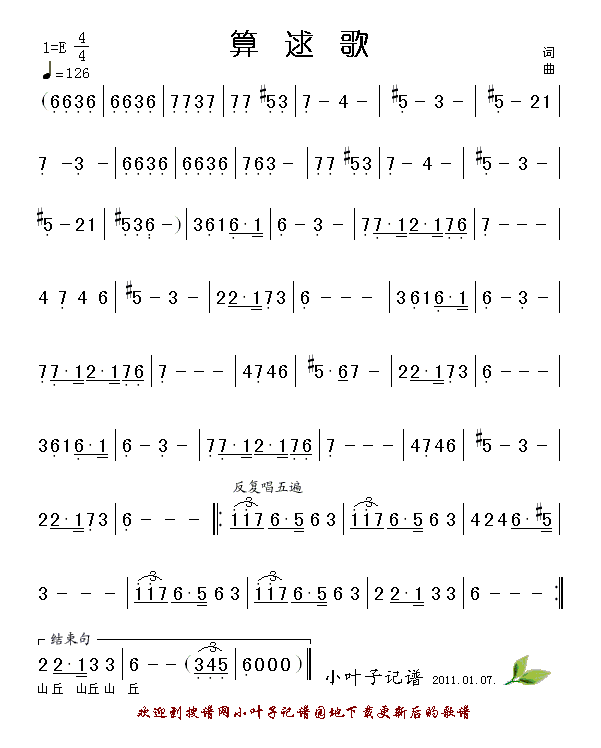 算逑歌
1=E 4/4
词
♩=126
曲
(6636|6636|7737|77 #53|7 - 4 -|#5 - 3 -|#5 - 21|
7 - 3 -|6636|6636|763 -|77 #53|7 - 4 -|#5 - 3 -|
#5 - 21|#536 - )|3616·1|6 - 3 -|77·12·176|7 - - -|
4 7 4 6|#5 - 3 -|22·173|6 - - -|3616·1|6 - 3 -|
77·12·176|7 - - -|4746|#5·67 -|22·173|6 - - -|
3616·1|6 - 3 -|77·12·176|7 - - -|4746|#5 - 3 -|
反复唱五遍
22·173|6 - - -‖: 3 117 6·5 6 3|3 117 6·5 6 3|4246·#5|
3 - - -|3 117 6·5 6 3|3 117 6·5 6 3|22·1 33|6 - - - :‖
结束句
22·1 33|6 - - (3 345|6000)‖
山丘 山丘山 丘
小叶子记谱 2011.01.07.
欢迎到搜谱网小叶子记谱园地下载更新后的歌谱